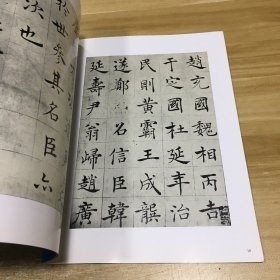 趙充國魏相丙吉
于定國杜延年治
民則黃霸王成龔
遂鄭召信臣韓
延壽尹翁歸趙廣
於世參其名臣亦
次也